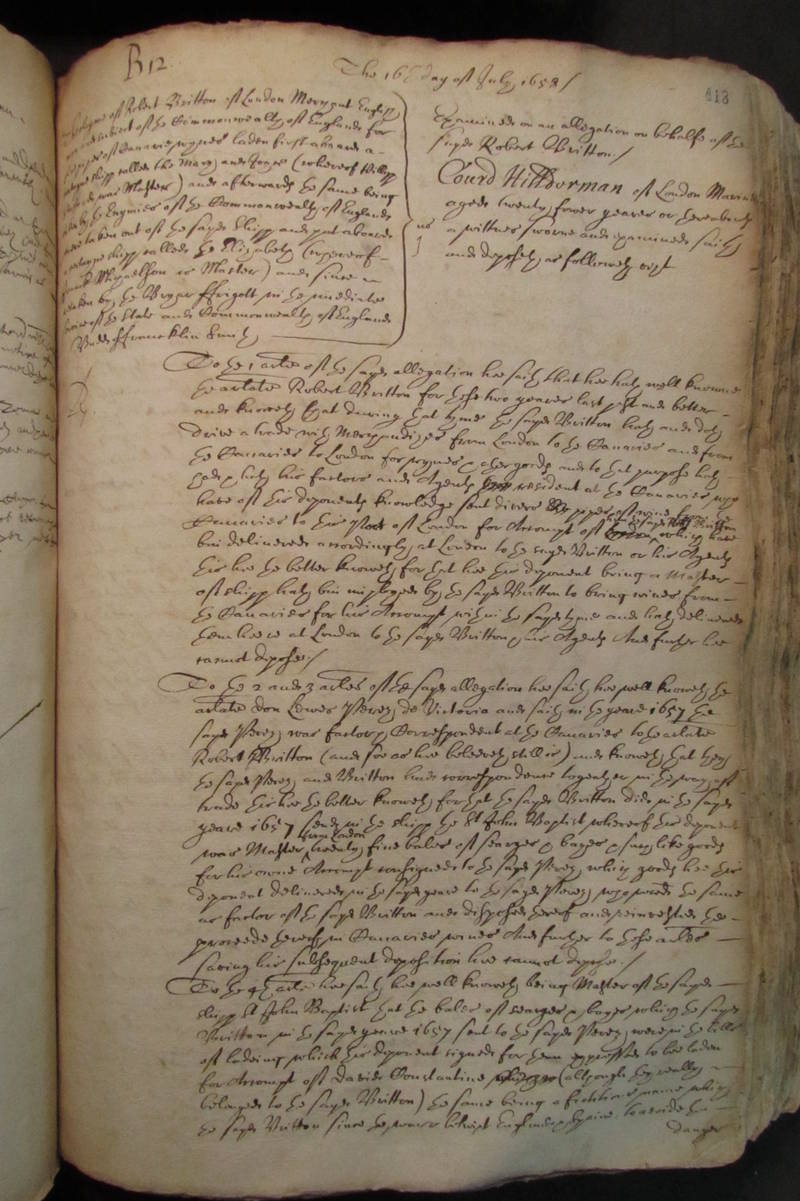 B12
The 16th day of July 1658 /
413
of Robert Britton of London Merchant English
and subiect of the Commonwealth of England for
pipes of Canarie wynes laden first aboard a
shipp called the Mary and Joyce (whereof Phillipp
was Master) and afterwards the same being
by the Enemies of the Commonwealth of England
taken out of the sayd shipp and put aboard
shipp called the Elizabeth (whereof
Michaelson is Master) and since
taken by the Bryar ffrigott in the imediate
service of the State and Commonwealth of England
Budd ffrancklin Smith
Examined on an allegation on behalfe of the
sayd Robert Britton /
Courd Hilderman of London Mariner
aged twenty fower yeares or thereabouts
a wittnes sworne and examined saith
and deposeth as followeth vizt
To the 1 article of the sayd allegation hee saith that hee hath well knowne
the arlate Robert Britton for theise two yeares last past and better
and knoweth that during that tyme the sayd Britton hath and doth
drive a trade with Merchandizes from London to the Canaries and from
the Canaries to London for wynes & other goods and to that purpose hath
had & hath his factors and Agents resident at the Canaries who
have of this deponents knowledge sent divers pipes of wine from the
Canaries to this Port of London for Accompt of the sayd Britton which have
bin delivered accordingly at London to the sayd Britton or his Agents
this hee the better knoweth for that hee this deponent being a Master
of shipp hath bin imployed by the sayd Britton to bring wines from
the Canaries for his Accompt within the sayd tyme and hath delivered
them here at London to the sayd Britton & his Agents And further hee
cannot depose /
To the 2 and 3 articles of the sayd allegation hee saith hee well knoweth the
arlate don Lewes Perez de Victoria and saith in the yeare 1657 the
sayd Perez was factor & Correspondent at the Canaries to the arlate
Robert Britton (and soe as hee beleeveth still is) and knoweth that they
the sayd Perez and Britton had correspondence togeather in the way of
trade this hee the better knoweth for that the sayd Britton did in the sayd
yeare 1657 send in the shipp the St John Baptist whereof this deponent
was Master from London twenty five bales of searges & bayes & such like goods
for his owne Accompt consigned to the sayd Perez which goods hee this
deponent delivered in the sayd yeare to the sayd Perez who received the same
as factor of the sayd Britton and disposed thereof and reinvested the
proceede thereof in Canaries wines And further to these articles
saving his subsequent deposition hee cannot depose /
To the 4th article hee saith hee well knoweth being Master of the sayd
shipp St John Baptist that the bales of searges & bayes which the sayd
Britton in the sayd yeare 1657 sent to the sayd Perez were in the bills
of lading which this deponent signed for them expressed to bee laden
for Accompt of David Constantine (although they really
belonged to the sayd Britton) the same being a fictitious name which
the sayd Britton since the warr betwixt England & Spaine to avoide the
danger